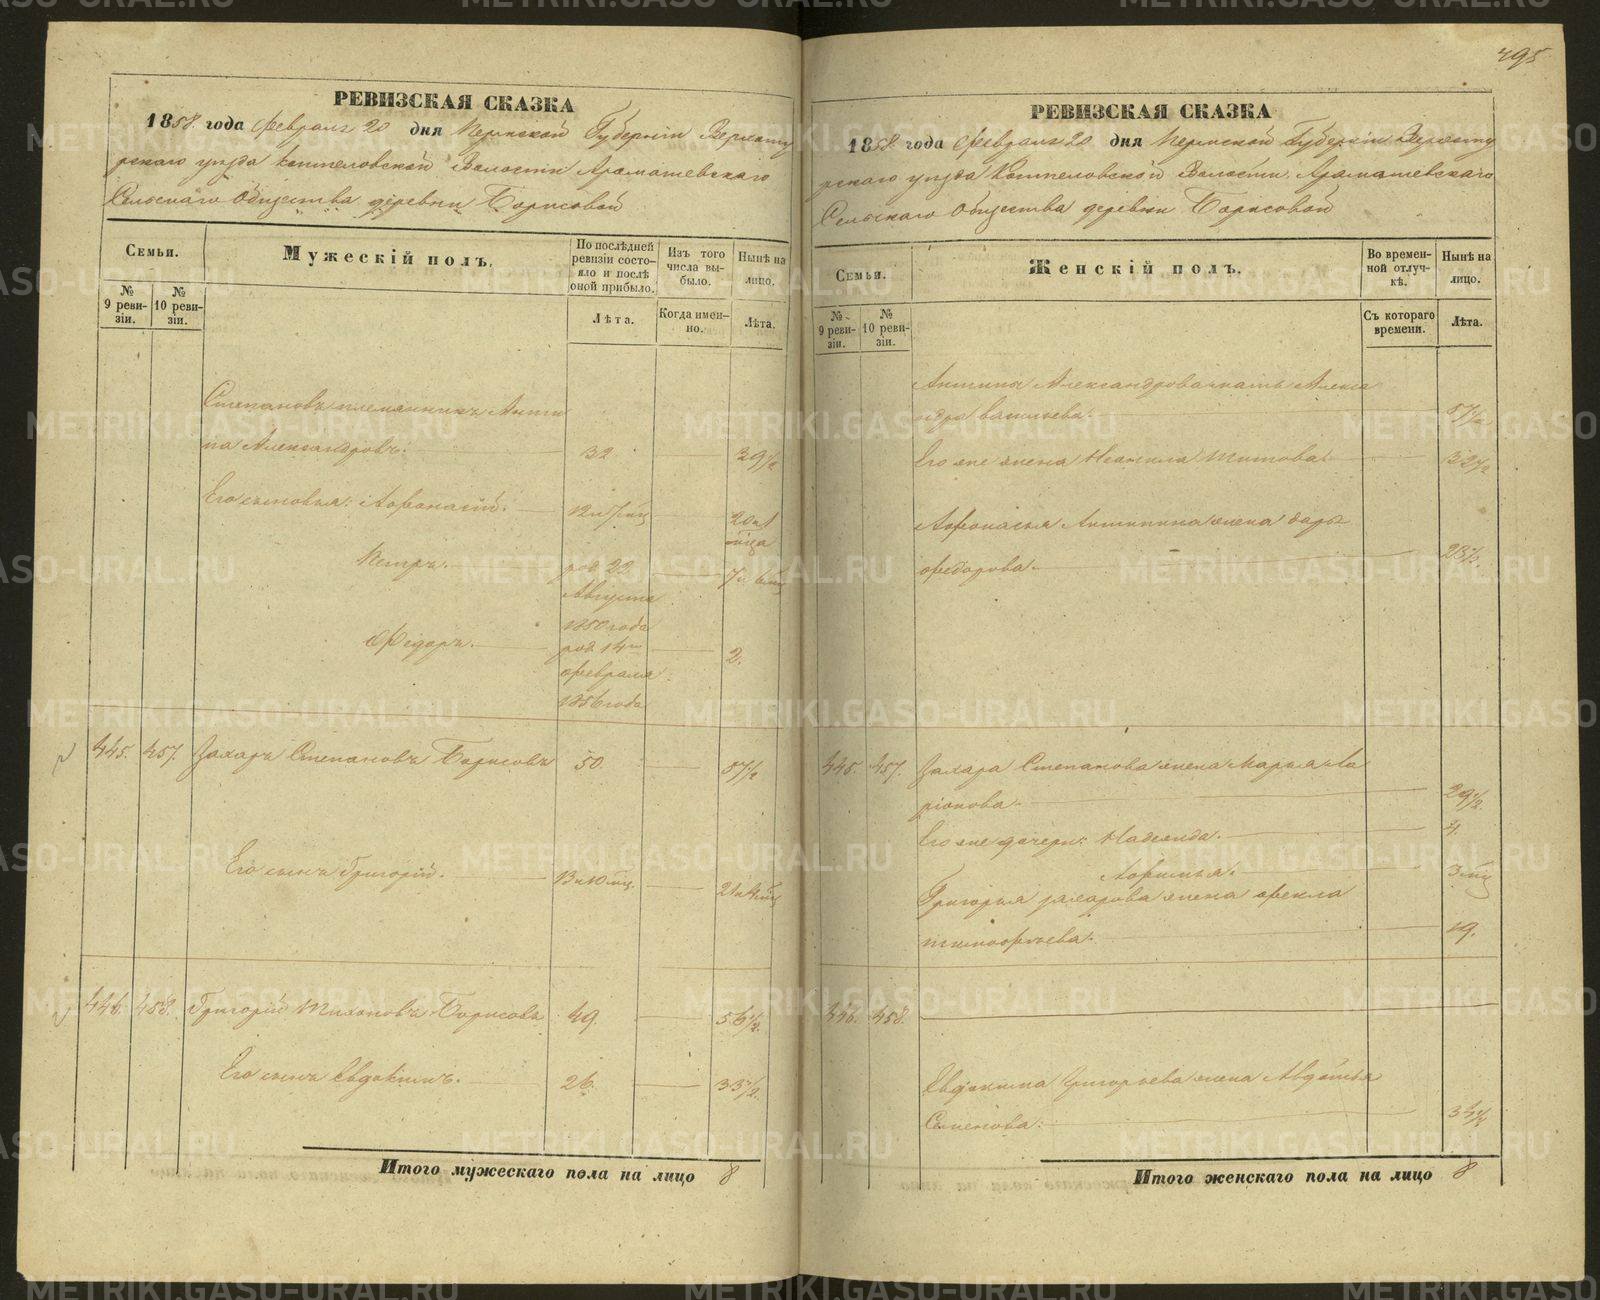 495
РЕВИЗСКАЯ СКАЗКА
1858 года Февраля 20 дня Пермской Губернiи Верхоту
рскаго уѣзда Коптеловской Волости Арамашевскаго
Сельскаго Общества деревни Борисовой
Семьи.
Мужескiй полъ.
По послѣдней ревизiи состояло и послѣ оной прибыло.
Изъ того числа выбыло.
Нынѣ на лицо.
№ 9 ревизiи.
№ 10 ревизiи.
Лѣта.
Когда именно.
Лѣта.
Степановъ племянникъ Анти
па Александровъ. 32 39½
Его сыновья: Афонасiй. 12 и 7 мц 20 и 1 мца
Петръ. род 22 Августа 1850 года 7 и 6 мц
Федоръ. род 14го февраля 1856 года 2.
445. 457. Захаръ Степановъ Борисовъ 50. 57½
Его сынъ Григорiй. 13 и 10 мц. 21 и 4 мц
446. 458. Григорiй Тихоновъ Борисовъ 49. 56½.
Его сынъ Евдокимъ. 26. 33½.
Итого мужескаго пола на лицо 8
РЕВИЗСКАЯ СКАЗКА
1858 года Февраля 20 дня Пермской Губернiи Верхоту
рскаго уѣзда Коптеловской Волости Арамашевскаго
Сельскаго Общества деревни Борисовой
Семьи.
Женскiй полъ.
Во временной отлучкѣ.
Нынѣ на лицо.
№ 9 ревизiи.
№ 10 ревизiи.
Съ котораго времени.
Лѣта.
Антипы Александрова мать Алекса
ндра Васильева. 57½
Его же жена Неонила Титова. 32½
Афонасья Антипина жена Дарья
Федорова. 23½.
445. 457. Захара Степанова жена Марья Ла
рiонова. 29½.
Его же дочери: Надежда. 4.
Афимья. 3 мц
Григорья Захарова жена Фекла
Тимофѣева. 19.
446. 458.
Евдокима Григорьева жена Авдотья
Семенова. 34½
Итого женскаго пола на лицо 8
METRIKI.GASO-URAL.RU